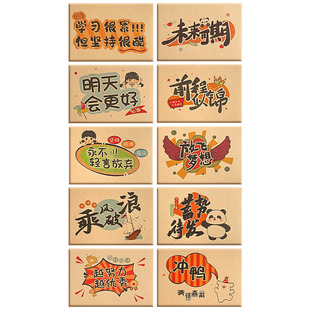 学习很累!!!
但坚持很酷
未来可期
明天
会更好
前程
似锦
永不!!
轻言放弃
放飞
梦想
乘风破浪
蓄势
待发
越努力
越优秀
冲鸭